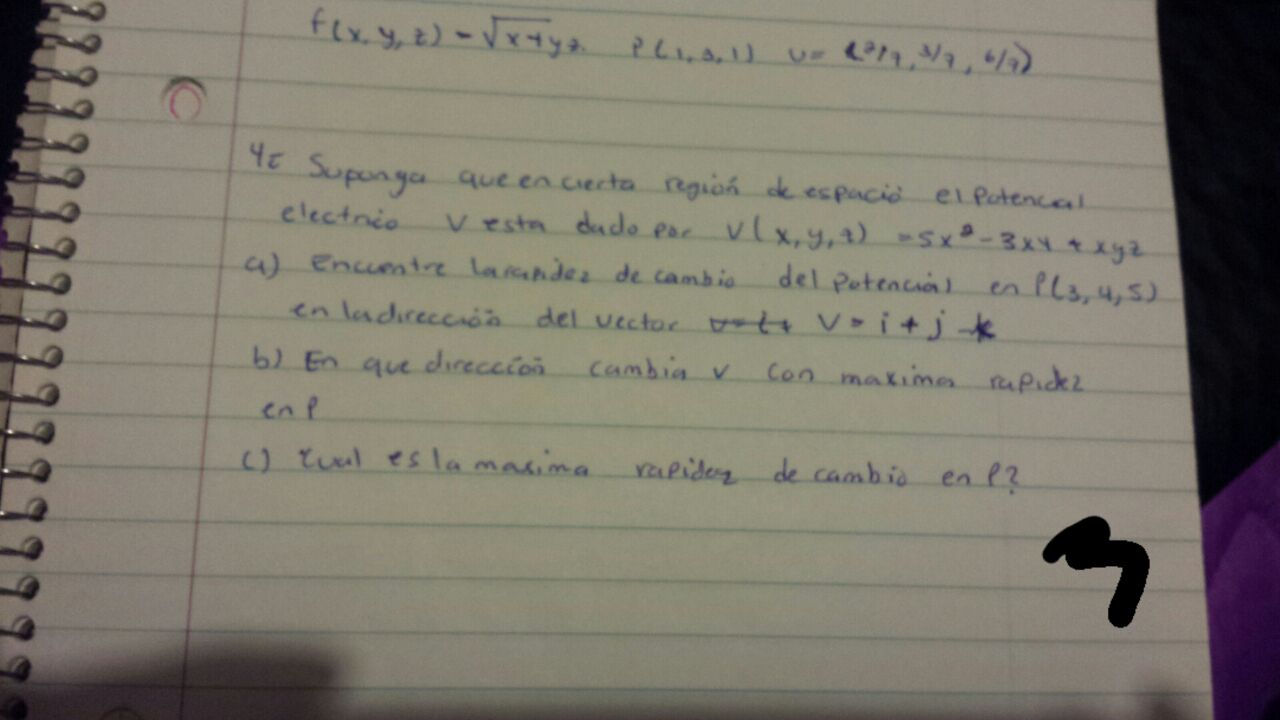 f(x, y, z) = √x+yz. P(1, 3, 1) u= (2/7, 3/7, 6/7)
4= Suponga que en cierta región de espacio el potencial
electrico V esta dado por V(x, y, z) =5x²-3xy + xyz
a) encuentre la rapidez de cambio del potencial en P(3, 4, 5)
en la dirección del vector V= i + j - k
b) En que dirección cambia v con maxima rapidez
en P
c) cual es la maxima rapidez de cambio en P?